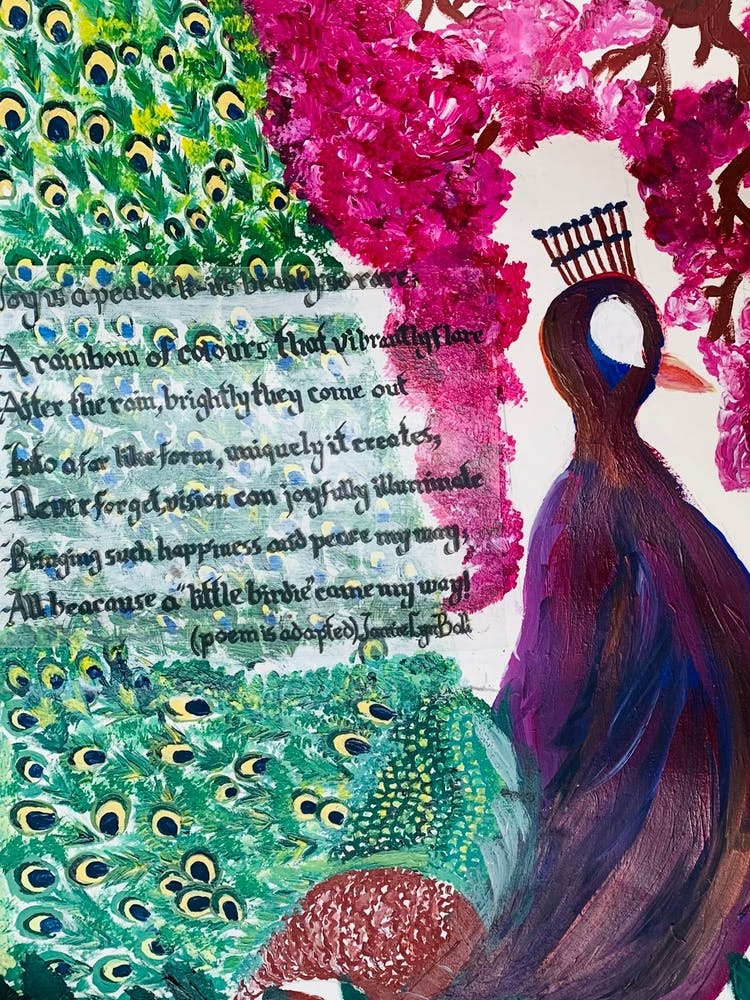 Joy is a peacock-its beauty so rare,
A rainbow of colours that vibrantly flare
After the rain, brightly they come out
Into a fan like form, uniquely it creates,
Never forget, vision can joyfully illuminate
Bringing such happiness and peace my way,
All beacause a "little birdie" came my way!
(poem is adapted)